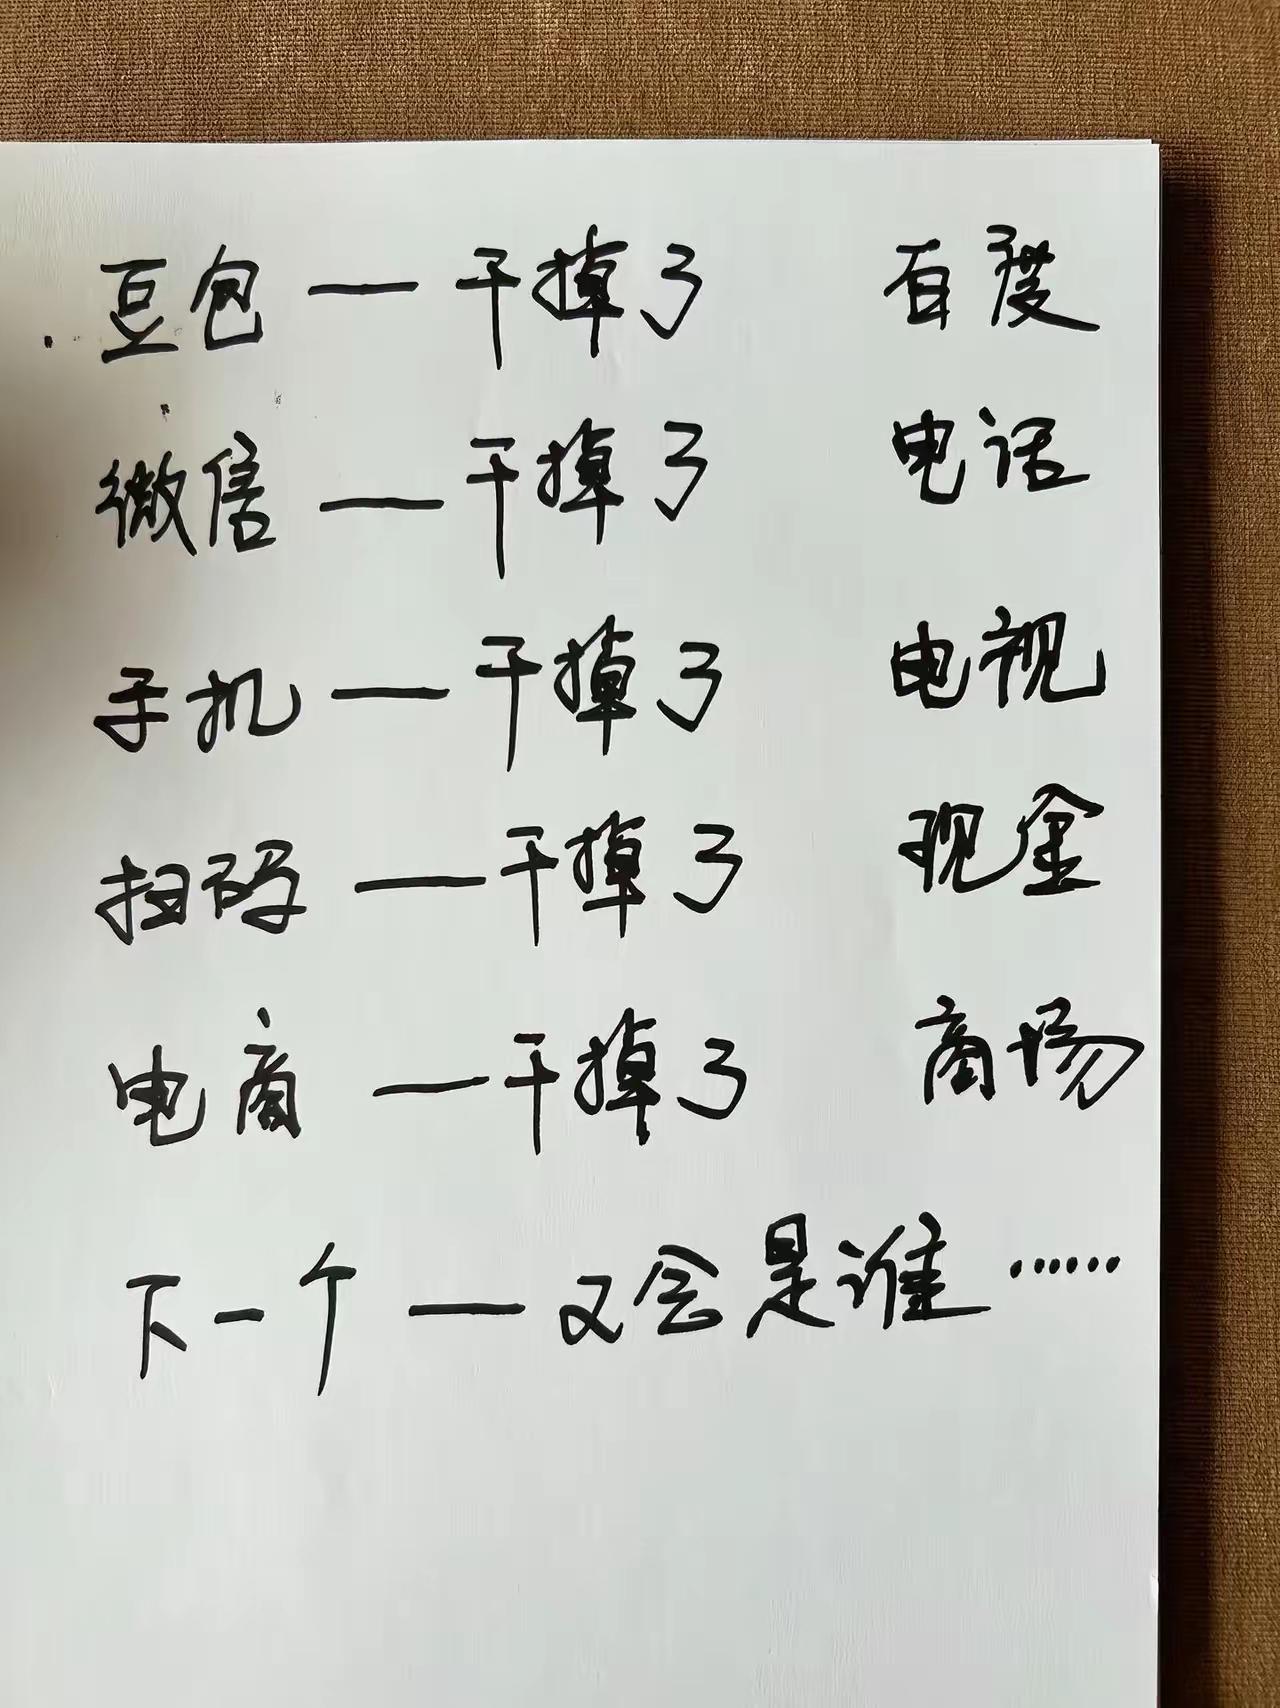 豆包—干掉了 百度
微信—干掉了 电话
手机—干掉了 电视
扫码—干掉了 现金
电商—干掉了 商场
下一个—又会是谁……